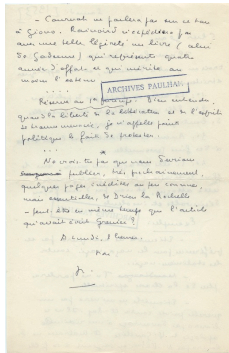 - Comment ne parlera pas sur ce ton
à Giono. Raimond n'expédiera pas
avec une telle légèreté un livre (celui
de Gadenne) qui représente quatre
années d'efforts et qui mérite au
moins l'attention
. . . .
ARCHIVES PAULHAN
Réunion au 1er
Bien entendu,
quand la liberté de la littérature et de l'esprit
se trouve menacée, je n'appelle point
politique le fait de protester.
. . . .
*
Ne crois-tu pas que nous devrions
publier, très prochainement,
quelques pages inédites ou peu connues,
mais essentielles, de Drieu la Rochelle
- peut-être en même temps que l'article
qu'avait écrit Grenier?
A lundi, 5 heures.
à toi
J.